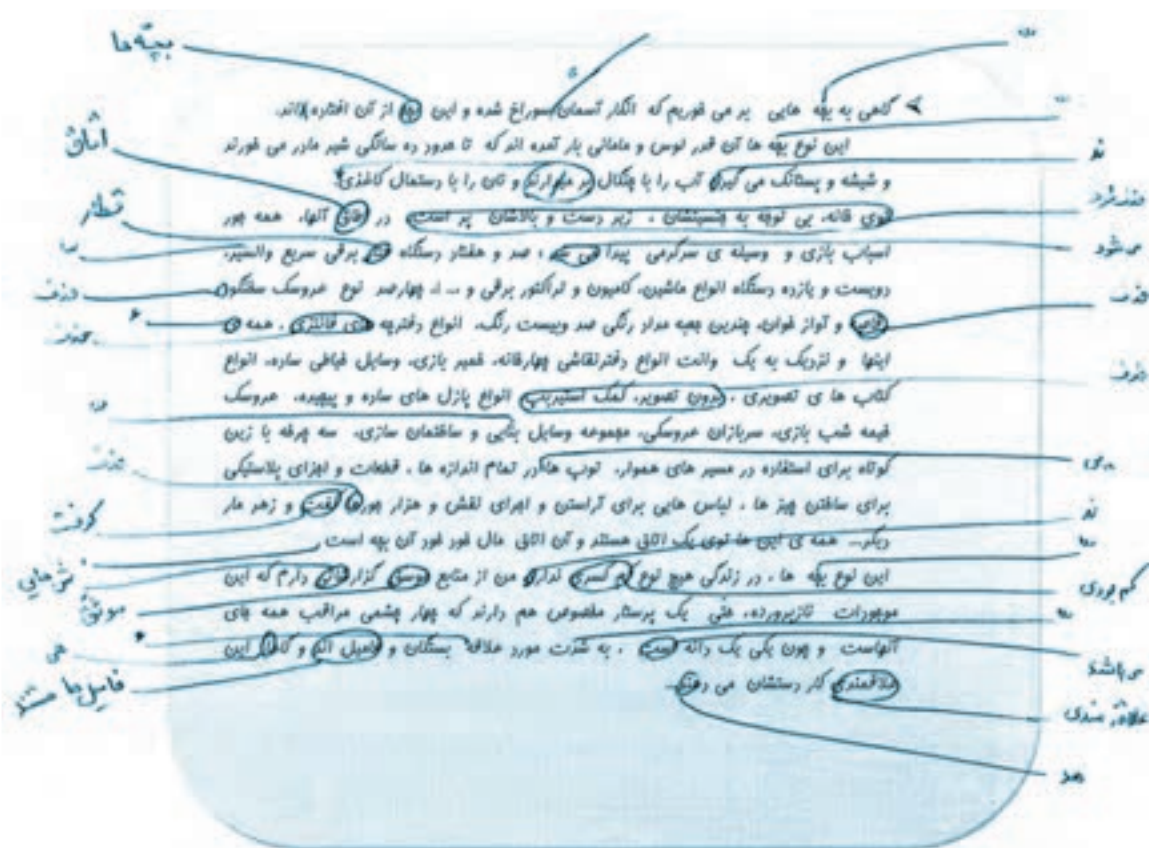 بچّه ها
گاهی به بچّه هایی بر می خوریم که انگار آسمان سوراخ شده و این از آن افتاده اند.
این نوع بچّه ها آن قدر لوس و مامانی بار آمده اند که تا حدود ده سالگی شیر مادر می خورند
و شیشه و پستانک می گیرند آب را با چنگال بر میدارند و نان را با دستمال کاغذی.
توی خانه، بی توجه به جنسیتشان ، زیر دست و بالاشان پر است. در اطاق آنها، همه جور
اسباب بازی و وسیله ی سرگرمی پیدا می ، صد و هفتاد دستگاه برقی سریع والسیر،
دویست و یازده دستگاه انواع ماشین، کامیون و تراکتور برقی و ... ، چهارصد نوع عروسک سخنگو
و آواز خوان، چندین جعبه مداد رنگی صد وبیست رنگ، انواع دفترچه های فانتزی ، همه
اینها و نزدیک به یک وانت انواع دفترنقاشی چهارخانه، خمیر بازی، وسایل خیاطی ساده، انواع
کتاب ها ی تصویری ، بدون تصویر، کمک انواع پازل های ساده و پیچیده، عروسک
خیمه شب بازی، سربازان عروسکی، مجموعه وسایل بنایی و ساختمان سازی، سه چرخه با زین
کوتاه برای استفاده در مسیر های هموار، توپ ها در تمام اندازه ها ، قطعات و اجزای پلاستیکی
برای ساختن چیز ها ، لباس هایی برای آراستن و اجرای نقش و هزار جور کوفت و زهر مار
دیگر... همه ی این ها توی یک اتاق هستند و آن اتاق مال خور خور آن بچه است
این نوع بچّه ها ، در زندگی هیچ نوع کم کسری ندارند من از منابع دارم که این
موجودات نازپرورده، حتّی یک پرستار مخصوص هم دارند که چهار چشمی مراقب همه جای
آنهاست و چون یکی یک دانه است ، به شدّت مورد علاقه بستگان و فامیل اند و این
علاقمندی کار دستشان می دهد.
اتاق
قطار
حذف
حذف
گرفت
موثّق
فامیل ها
ند
می شود
حذف
حذف
ند
کم بودی
می باشد
علاقه مندی
هد